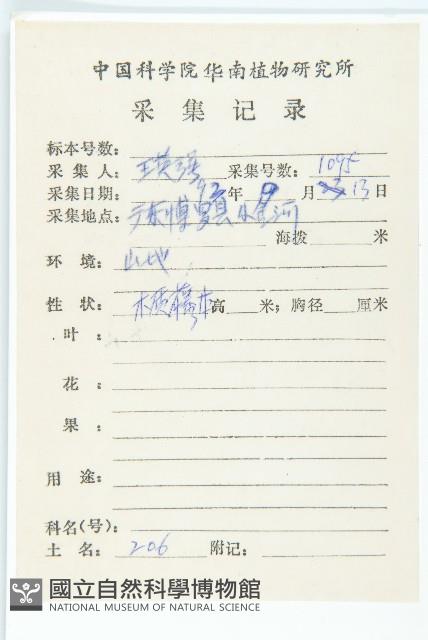 中国科学院华南植物研究所
采集记录
标本号数:
采集人: 王英强 采集号数: 1095
采集日期: 93年9月13日
采集地点: 广东博罗县小金河
海拨 米
环境: 山地
性状: 木质藤本 高 米; 胸径 厘米
叶:
花:
果:
用途:
科名(号):
土名: 206 附记:
國立自然科學博物館
NATIONAL MUSEUM OF NATURAL SCIENCE